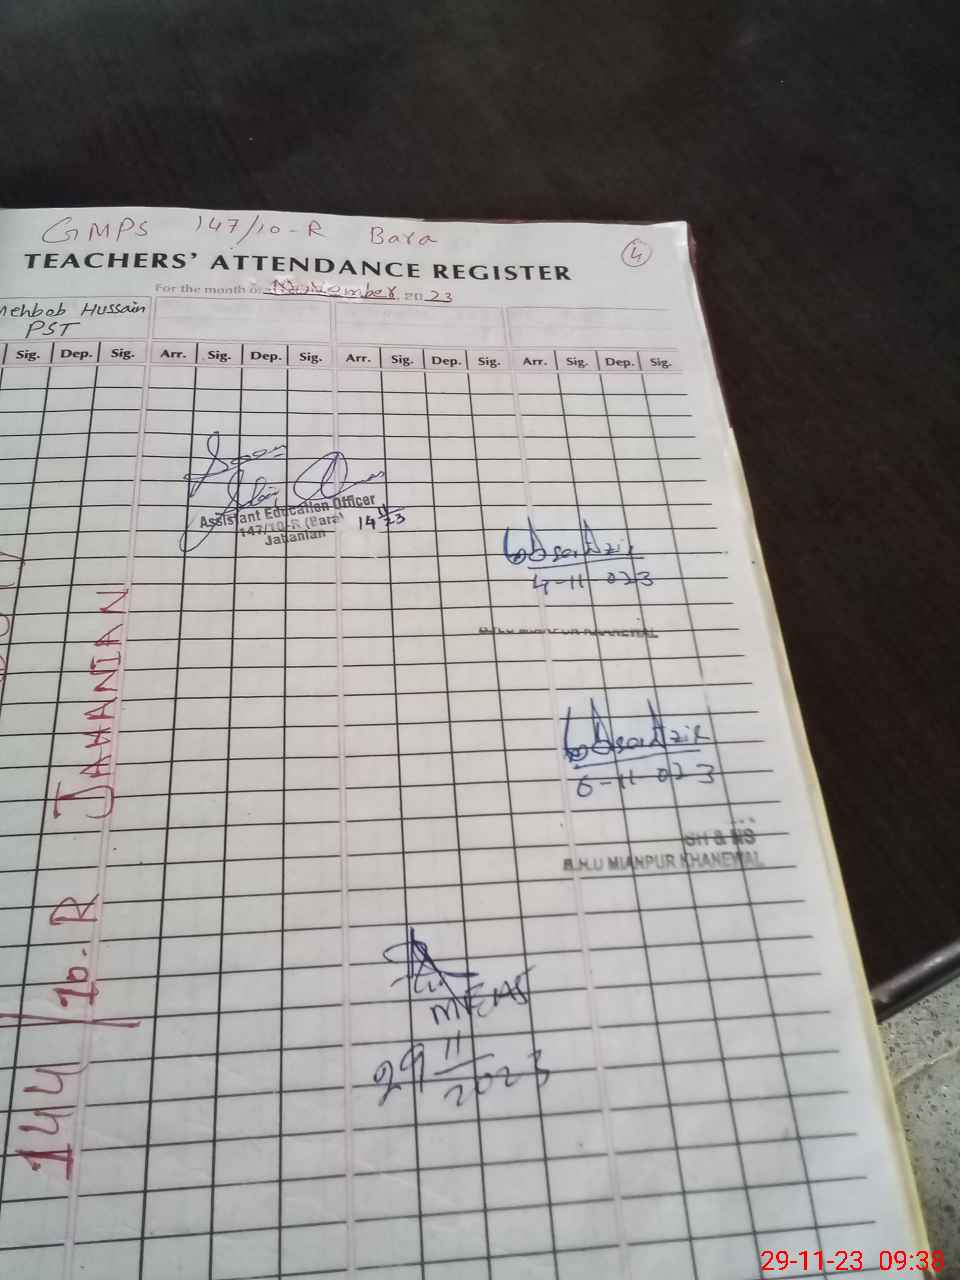 GMPS 147/10-R Bara
4
TEACHERS' ATTENDANCE REGISTER
For the month of November 2023
Mehbob Hussain
PST
Sig. Dep. Sig. Arr. Sig. Dep. Sig. Arr. Sig. Dep. Sig. Arr. Sig. Dep. Sig.
Assistant Education Officer
147/10-R (Bara)
Jahanian
14 11/23
4-11-023
B.H.U MIANPUR KHANEWAL
6-11-023
SH & NS
B.H.U MIANPUR KHANEWAL
MEAS
29 11/2023
144/10.R JAHANIAN
29-11-23 09:38